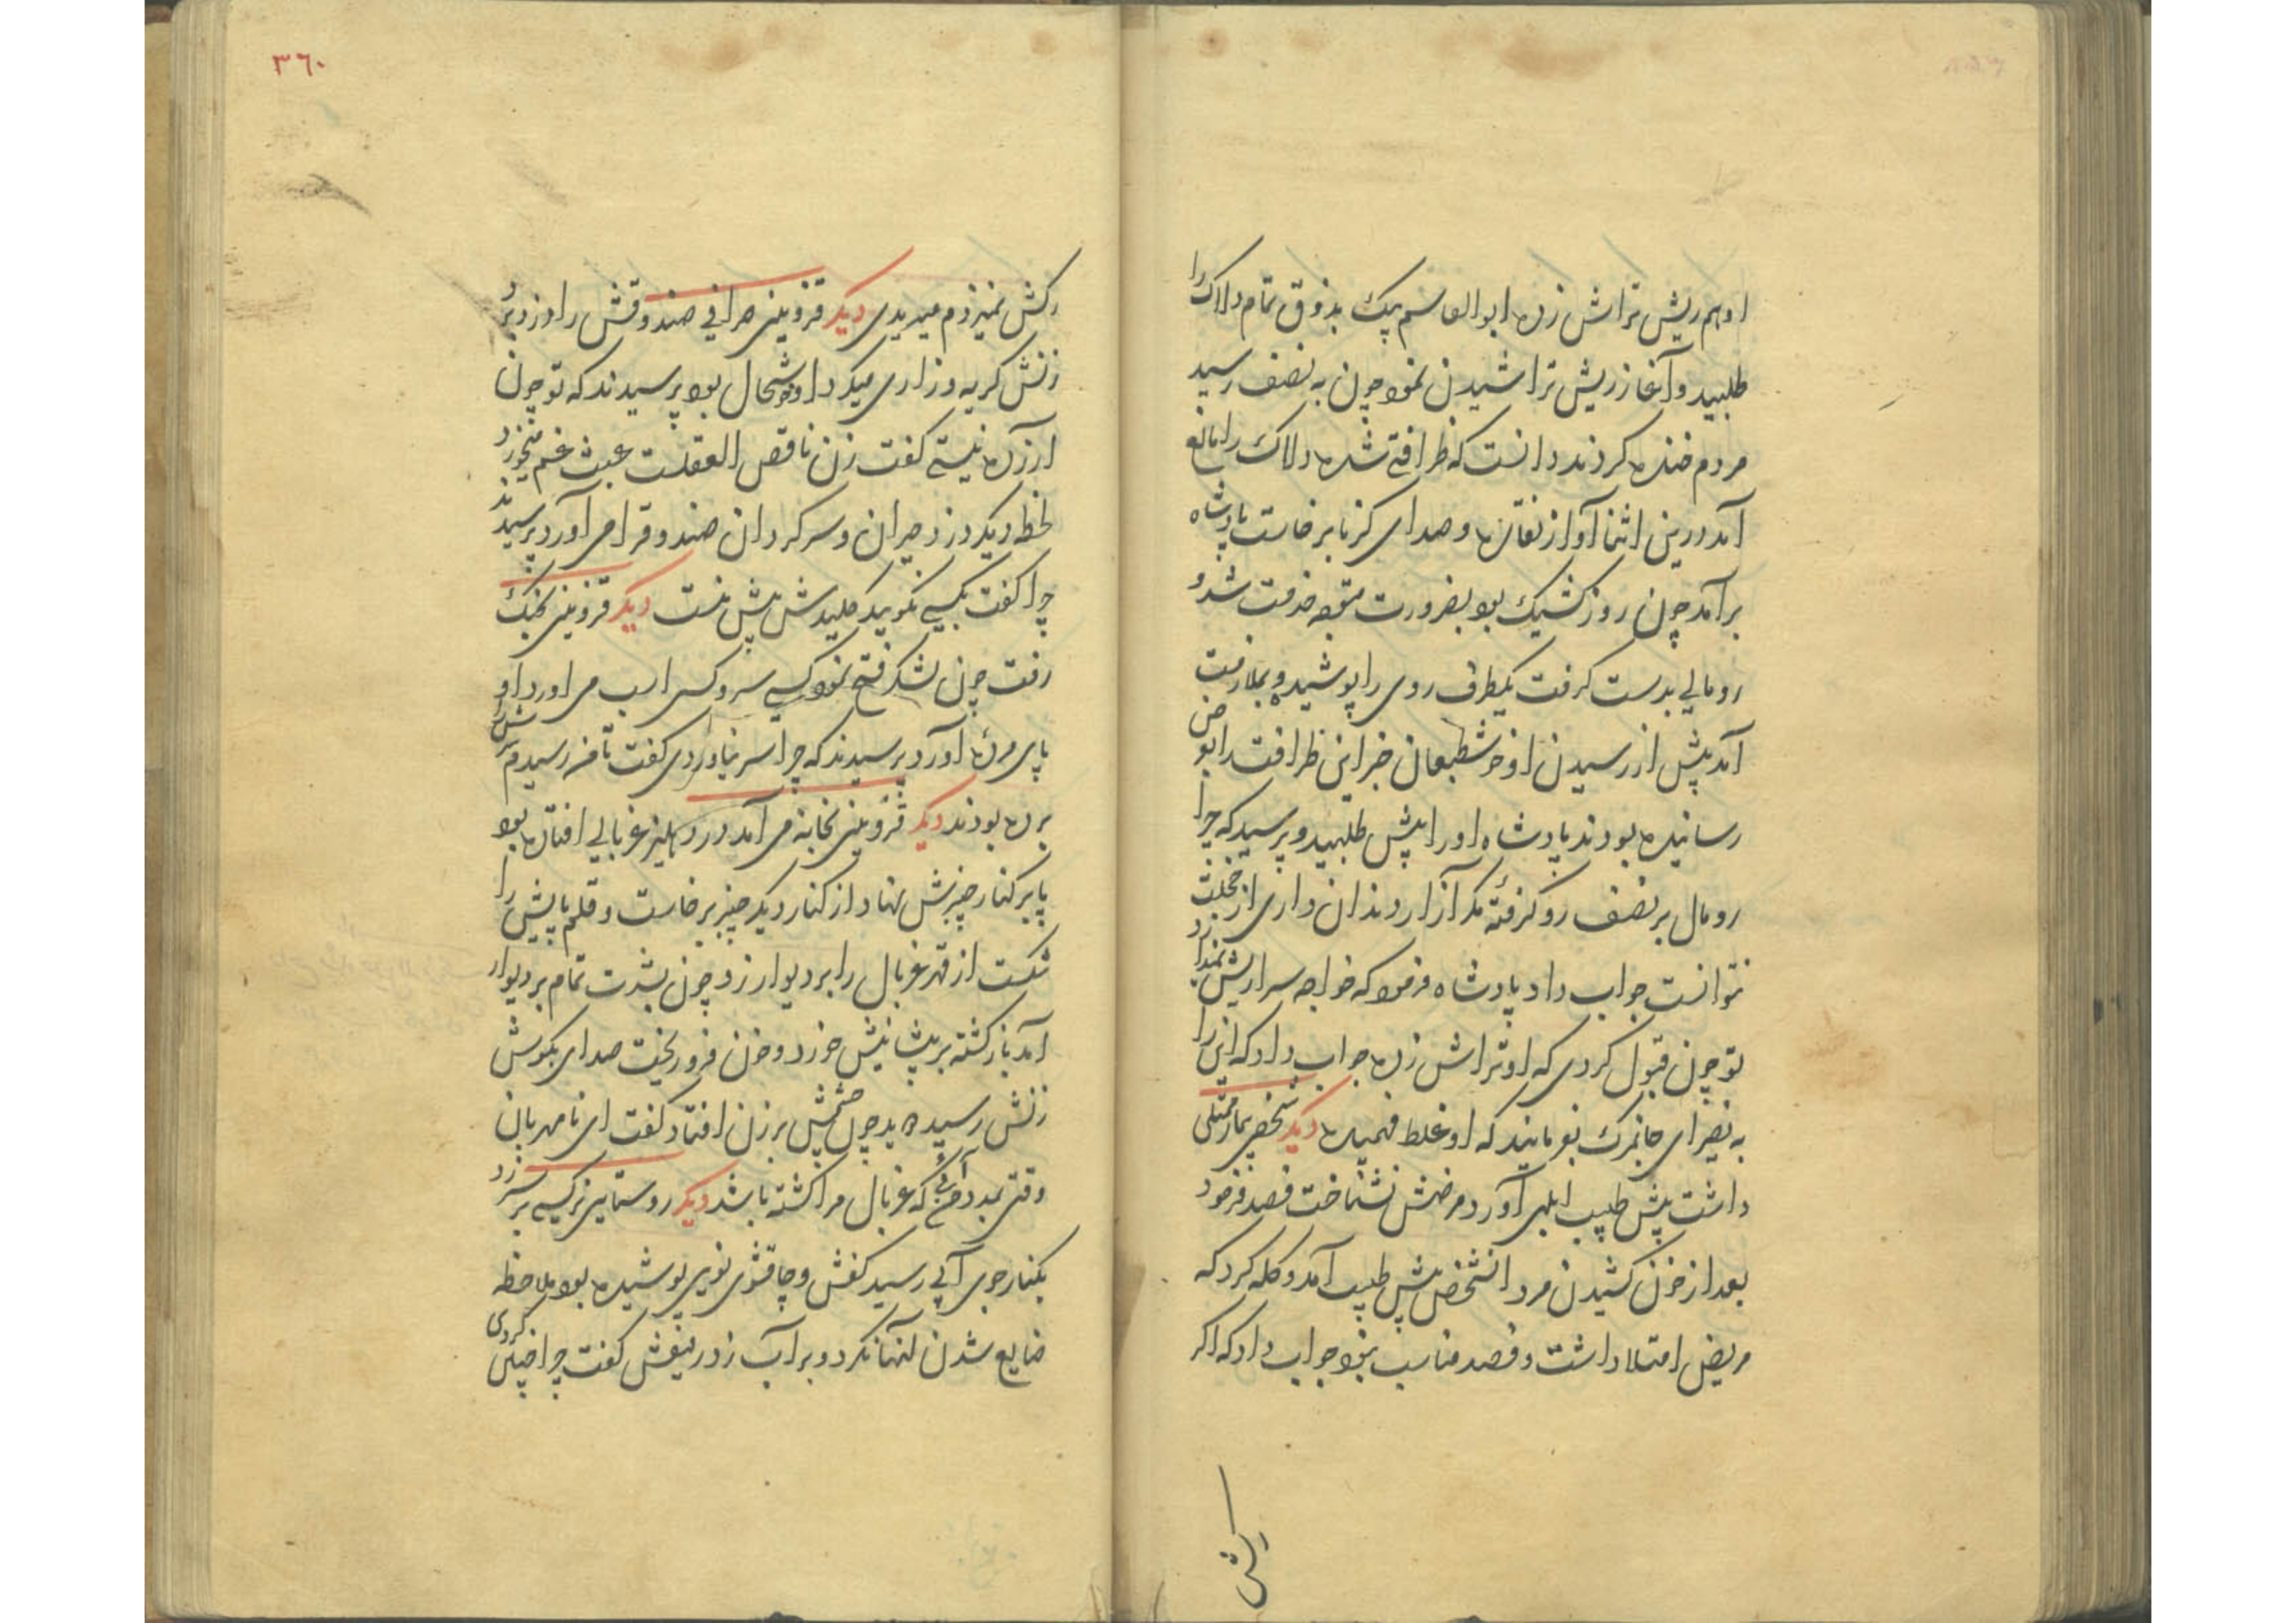 اوهم ریش تراش زده ابوالقاسم بیک بذوق تمام دلاک را
طلبید و آغاز ریش تراشیدن نمود چون به نصف رسید
مردم خنده کردند دانست که ظرافتی شده دلاک را مانع
آمد درین اثنا آواز نقاره و صدای کرنا برخاست پادشاه
برآمد چون روز کشیک بود بضرورت متوجه خدمت شد و
رومالی بدست کرفت یکطرف روی را پوشیده و بملازمت
آمد پیش از رسیدن او خوشطبعان خبر این ظرافت را بعرض
رسانیده بودند پادشاه او را پیش طلبید و پرسید که چرا
رومال بر نصف رو کرفتهٔ مکر آزار دندان داری از خجلت
نتوانست جواب داد پادشاه فرمود که خواجه سرا ریش ندارد
تو چون قبول کردی که او تراش زده جواب داد که این را
به نصیرای جانمرک بفرمایند که او غلط فهمیده دیکر شخصی بیمار ممتلی
داشت پیش طبیب ابلهی آورد مرضش نشناخت فصد فرمود
بعد از خون کشیدن مرد انشخص پیش طبیب آمد و کله کرد که
مریض امتلا داشت و فصد مناسب نبود جواب داد که اکر
رکش
٣٦٠
رکش نمیزدم میدیدی دیکر قزوینی صرافی صندوقش را دزد برد
زنش کریه و زاری میکرد او خوشحال بود پرسیدند که تو چون
آزرده نیستی کفت زن ناقص العقلست عبث غم میخورد
لحظه دیکر دزد حیران و سرکردان صندوقرا می آورد پرسیدند
چرا کفت بکسی نکویید کلیدش پیش منست دیکر قزوینی بجنک
رفت چون لشکر فتح نمود کسی سر و کسی اسب می اورد او
پای مردهٔ آورد پرسیدند که چرا سر نیاوردی کفت تا من رسیدم سرش را
برده بودند دیکر قزوینی بخانه می آمد در دهلیز غربالی افتاده بود
پا بر کنار چنبرش نهاد از کنار دیکر چنبر برخاست و قلم پایش را
شکست از قهر غربال را بر دیوار زد چون بشدت تمام بر دیوار
آمد باز کشته بر پیشانیش خورد و خون فرو ریخت صدای بکوش
زنش رسیده دوید چون چشمش بر زن افتاد کفت ای نامهربان
وقتی بمدد من آئی که غربال مرا کشته باشد دیکر روستایی ترکیبی بر سر زد
بکنار جوی آبی رسید کفش و چاقشوی نویی پوشیده بود ملاحظه
ضایع شدن انها نکرد و بر آب زد رفیقش کفت چرا چنین کردی